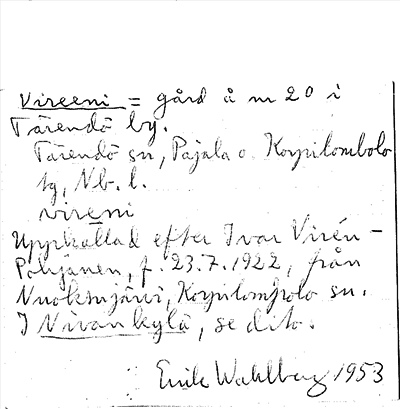 Vireeni = gård å nr 20 i
Tärendö by.
Tärendö sn, Pajala o. Korpilombolo
tg, Nb. l.
vireni
Uppkallad efter Ivar Virén-
Pohjanen, f. 23.7.1922, från
Nuoksujärvi, Korpilombolo sn.
I Nivankylä, se dito.
Erik Wahlberg 1953